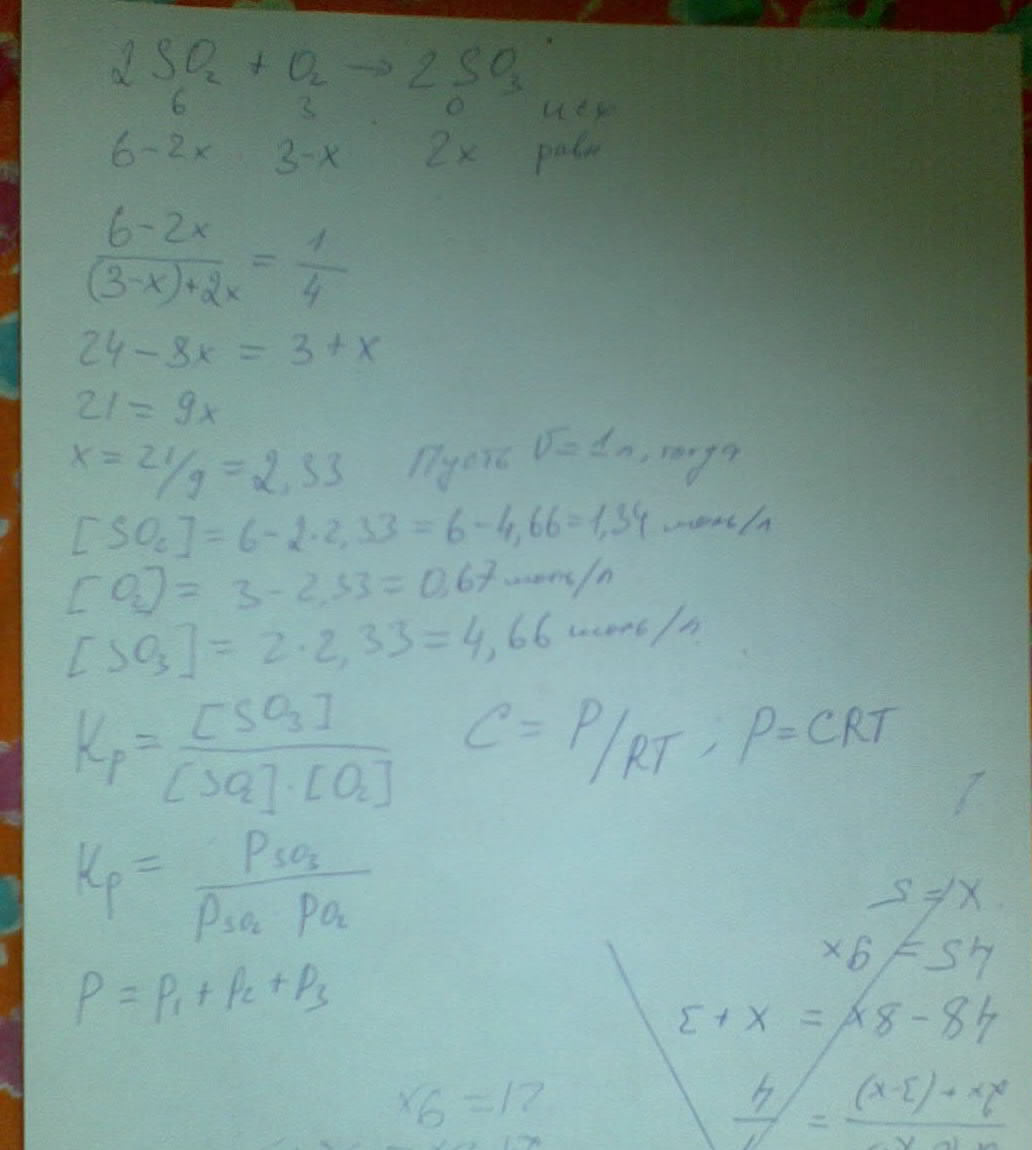 2SO₂ + O₂ → 2SO₃
6 3 0 исх
6-2x 3-x 2x равн
(6-2x)/((3-x)+2x) = 1/4
24-8x = 3+x
21 = 9x
x = 21/9 = 2,33 Пусть V = 1л, тогда
[SO₂] = 6-2·2,33 = 6-4,66 = 1,34 моль/л
[O₂] = 3-2,33 = 0,67 моль/л
[SO₃] = 2·2,33 = 4,66 моль/л
Kp = [SO₃]/([SO₂]·[O₂]) C = P/RT, P = CRT
Kp = PSO₃/(PSO₂ PO₂)
P = P₁ + P₂ + P₃
x = 5
45 = 9x
48-8x = x+3
2x+(3-x) = 4
21 = 9x